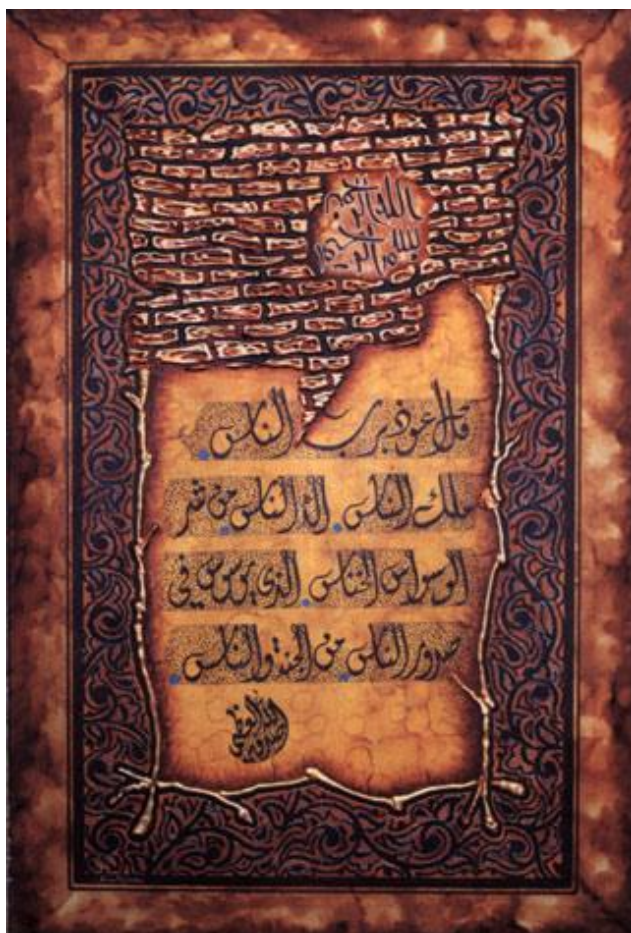 بسم الله الرحمن الرحيم
قل اعوذ برب الناس
ملك الناس اله الناس من شر
الوسواس الخناس الذي يوسوس في
صدور الناس من الجنة والناس
صدق الله العظيم